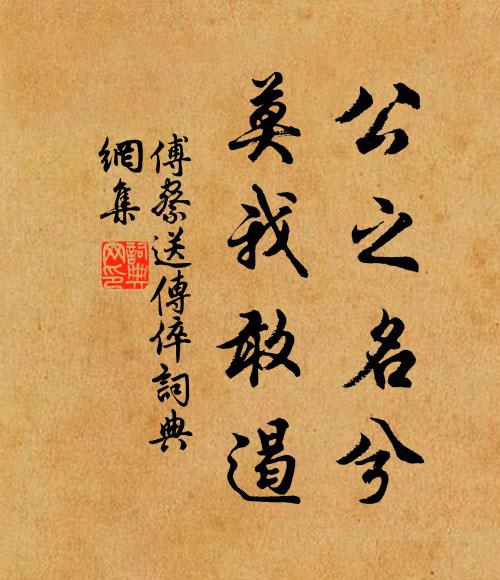 公之名兮
莫我敢遏
傅察送傅倅詞典
網集
詞典
网印